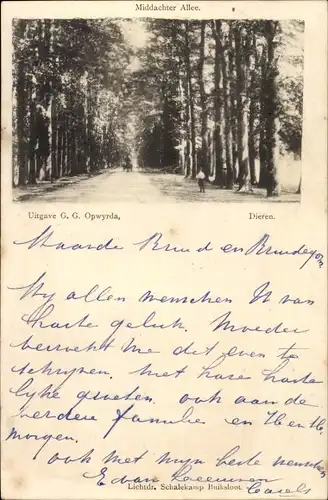 Middachter Allee.
Uitgave G. G. Opwyrda, Dieren.
Waarde Bruid en Bruidegom
Wy allen menschen U van
harte geluk. Moeder
verzocht me dit even te
schrijven. met hare harte
lyke groeten. ook aan de
beiden familie en
morgen.
ook met myn beste menschen
E van
Lichtdr. Schalekamp Buiksloot.